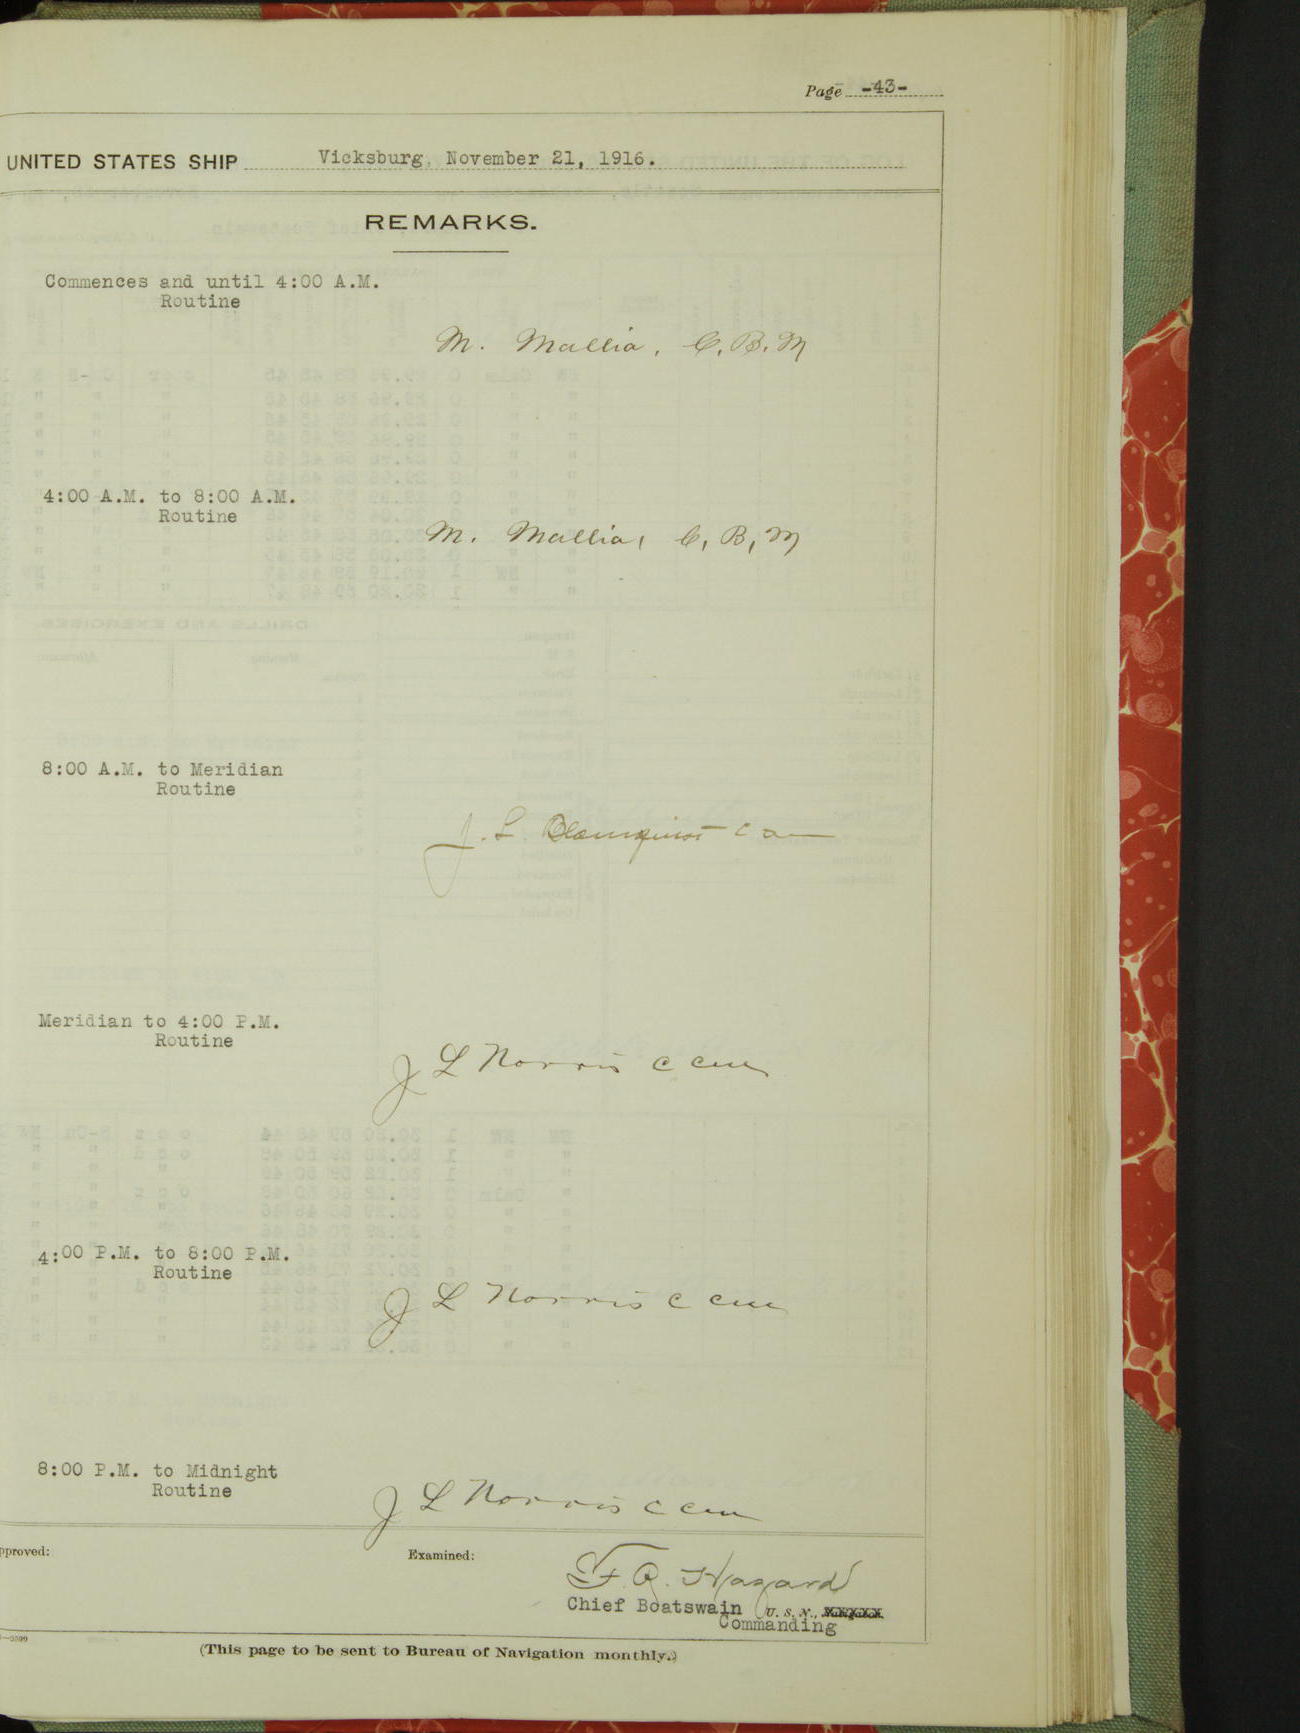 Page -43-
UNITED STATES SHIP Vicksburg, November 21, 1916.
REMARKS.
Commences and until 4:00 A.M.
Routine
M. Mallia, C.B.M
4:00 A.M. to 8:00 A.M.
Routine
M. Mallia, C,B,M
8:00 A.M. to Meridian
Routine
J. L. Blomquist
Meridian to 4:00 P.M.
Routine
J L Norris C C M
4:00 P.M. to 8:00 P.M.
Routine
J L Norris C C M
8:00 P.M. to Midnight
Routine
J L Norris C C M
pproved: Examined:
F. R. Hazard
Chief Boatswain U. S. N.,
Commanding
(This page to be sent to Bureau of Navigation monthly.)